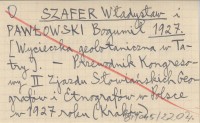 SZAFER Władysław i
PAWŁOWSKI Bogumił 1927.
[Wycieczka geobotaniczna w Ta-
try]. — Przewodnik Kongreso-
wy II Zjazdu Słowiańskich Geo-
grafów i Etnografów w Polsce
w 1927 roku (Kraków)